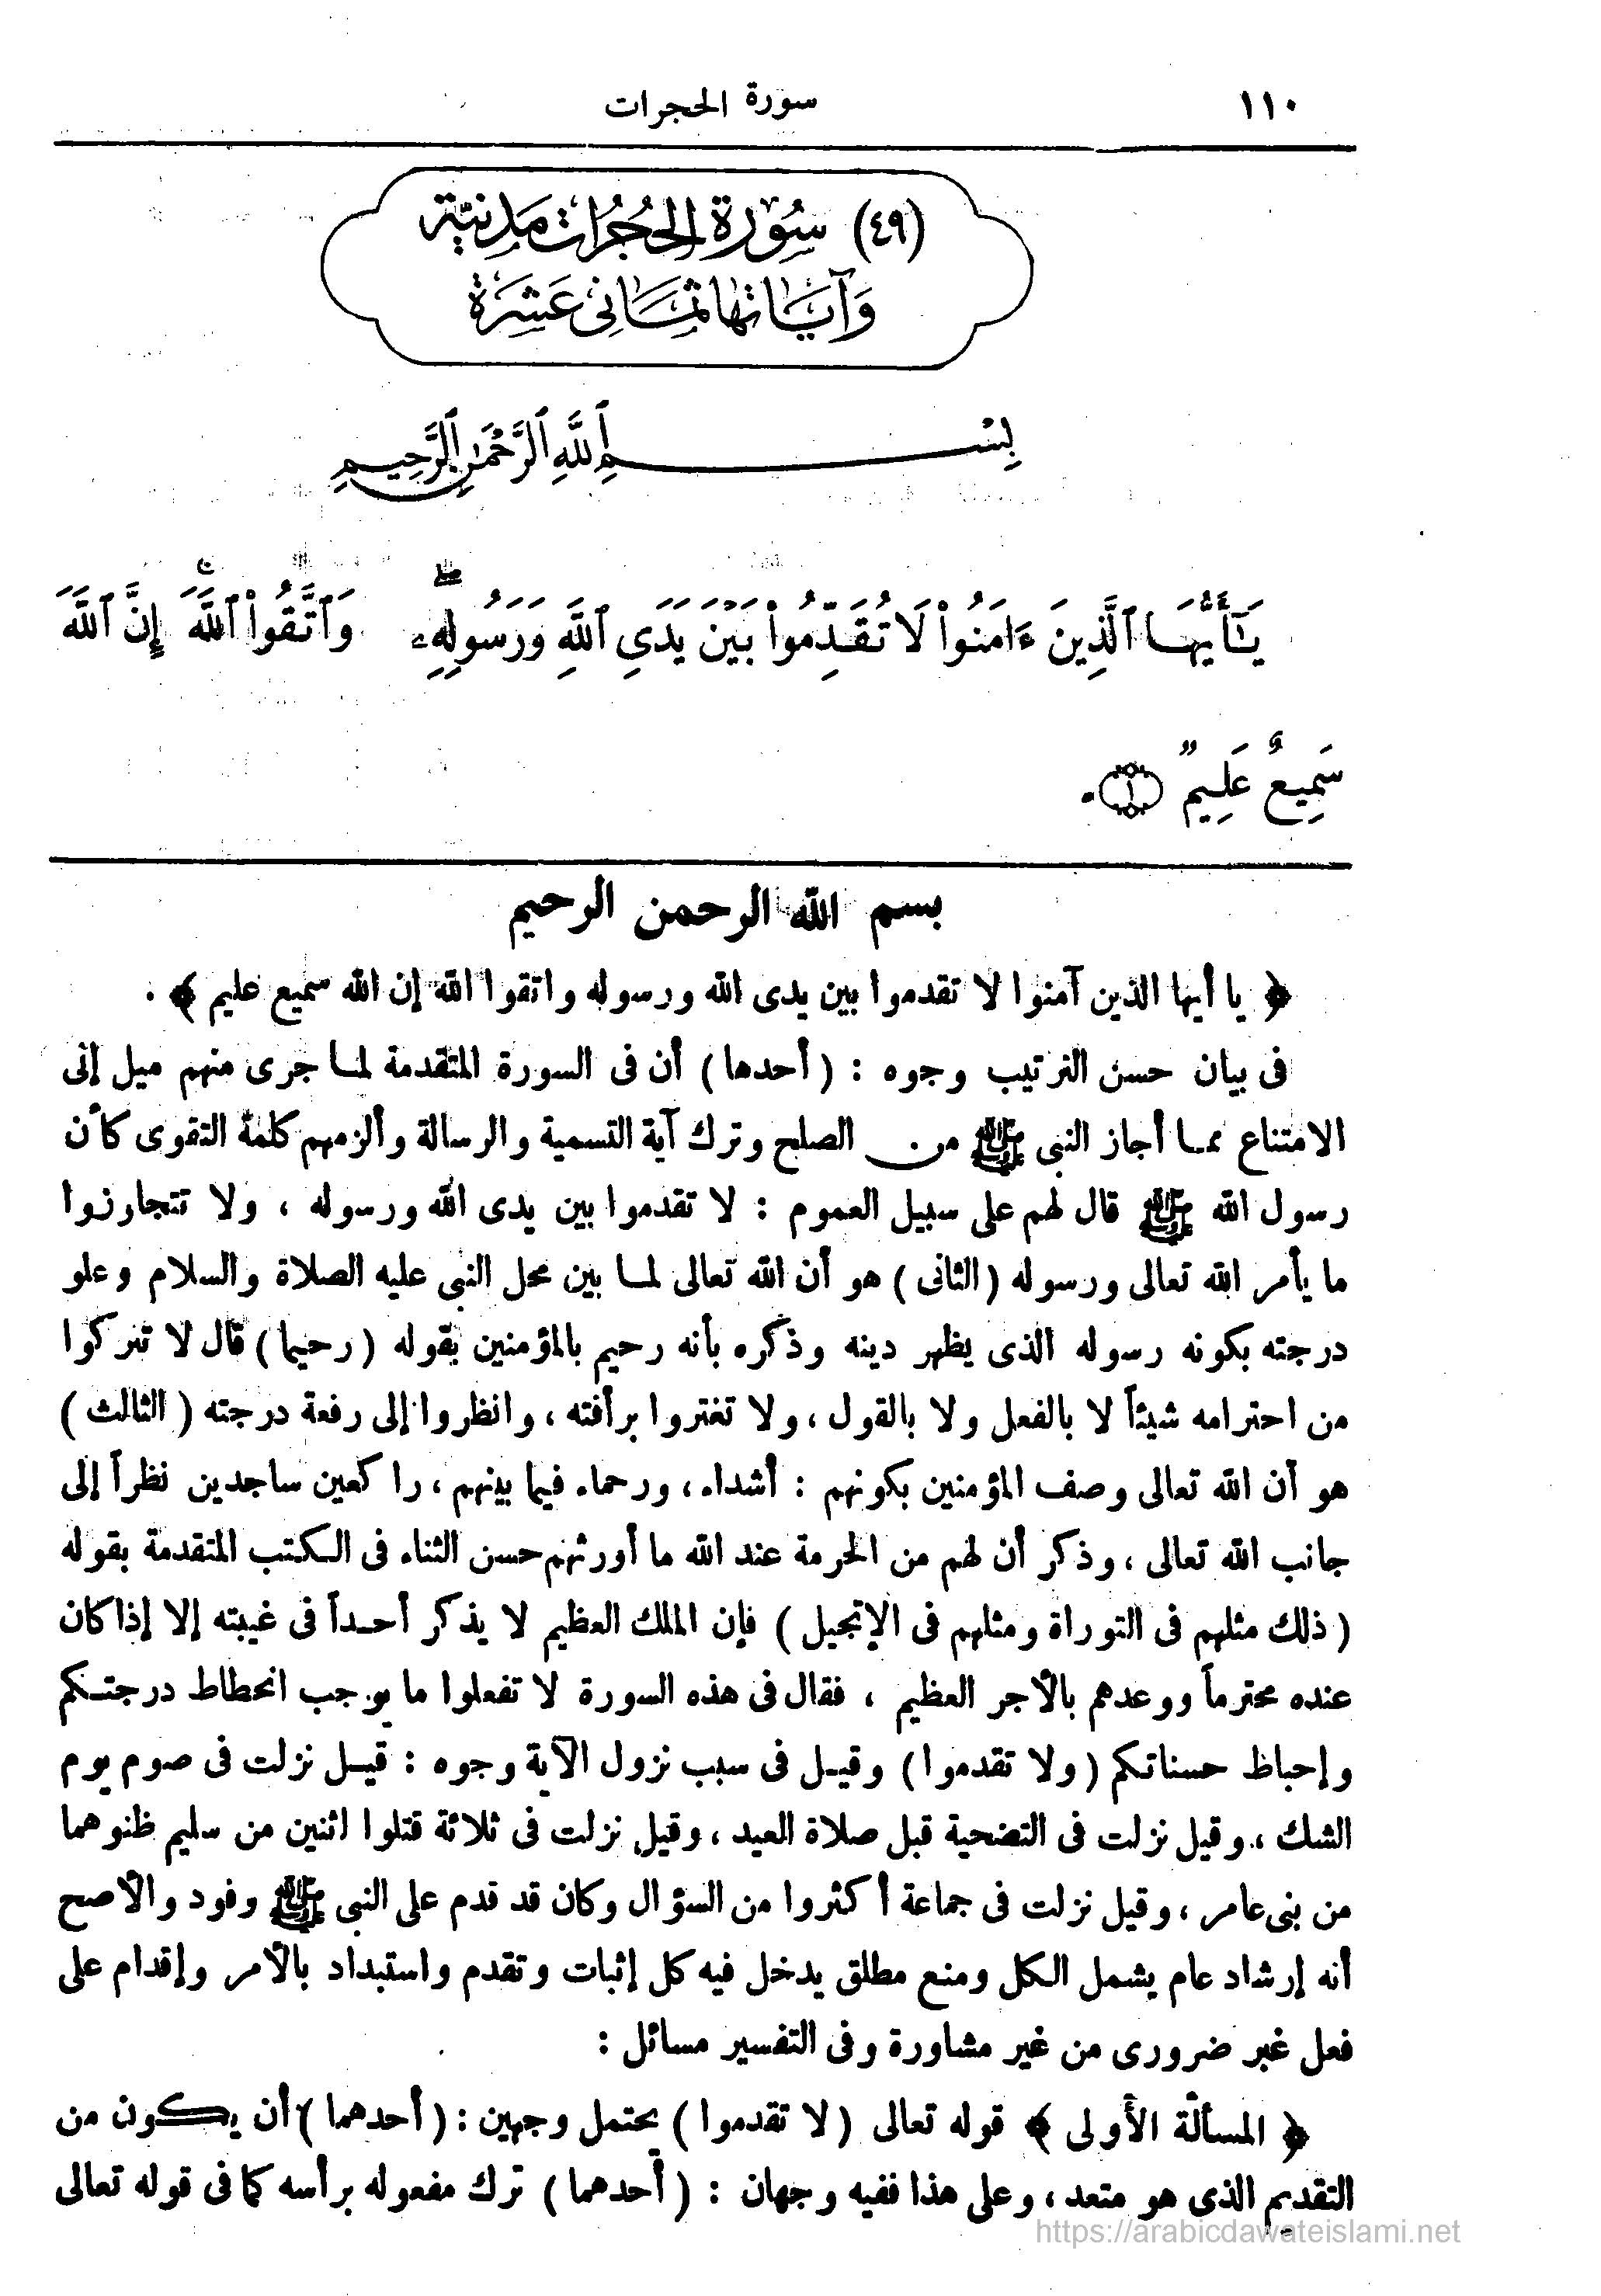 ١١٠ سورة الحجرات
(٤٩) سُورَة الحُجُرَات مَدنيَّة
وَآيَاتها ثمَانى عَشرَة
بِسْمِ ٱللَّهِ ٱلرَّحْمَٰنِ ٱلرَّحِيمِ
يَٰٓأَيُّهَا ٱلَّذِينَ ءَامَنُوا۟ لَا تُقَدِّمُوا۟ بَيْنَ يَدَىِ ٱللَّهِ وَرَسُولِهِۦ ۖ وَٱتَّقُوا۟ ٱللَّهَ ۚ إِنَّ ٱللَّهَ
سَمِيعٌ عَلِيمٌ ١ .
بسم الله الرحمن الرحيم
﴿ يا أيها الذين آمنوا لا تقدموا بين يدى الله ورسوله واتقوا الله إن الله سميع عليم ﴾ .
فى بيان حسن الترتيب وجوه : ( أحدها ) أن فى السورة المتقدمة لما جرى منهم ميل إلى
الامتناع مما أجاز النبى ﷺ من الصلح وترك آية التسمية والرسالة وألزمهم كلمة التقوى كأن
رسول الله ﷺ قال لهم على سبيل العموم : لا تقدموا بين يدى الله ورسوله ، ولا تتجاوزوا
ما يأمر الله تعالى ورسوله ( الثانى ) هو أن الله تعالى لما بين محل النبى عليه الصلاة والسلام وعلو
درجته بكونه رسوله الذى يظهر دينه وذكره بأنه رحيم بالمؤمنين بقوله ( رحيما ) قال لا تتركوا
من احترامه شيئاً لا بالفعل ولا بالقول ، ولا تغتروا برأفته ، وانظروا إلى رفعة درجته ( الثالث )
هو أن الله تعالى وصف المؤمنين بكونهم : أشداء ، ورحماء فيما بينهم ، راكعين ساجدين نظراً إلى
جانب الله تعالى ، وذكر أن لهم من الحرمة عند الله ما أورثهم حسن الثناء فى الكتب المتقدمة بقوله
( ذلك مثلهم فى التوراة ومثلهم فى الإنجيل ) فإن الملك العظيم لا يذكر أحداً فى غيبته إلا إذا كان
عنده محترماً ووعدهم بالأجر العظيم ، فقال فى هذه السورة لا تفعلوا ما يوجب انحطاط درجتكم
وإحباط حسناتكم ( ولا تقدموا ) وقيل فى سبب نزول الآية وجوه : قيل نزلت فى صوم يوم
الشك ، وقيل نزلت فى التضحية قبل صلاة العيد ، وقيل نزلت فى ثلاثة قتلوا اثنين من سليم ظنوهما
من بنى عامر ، وقيل نزلت فى جماعة أكثروا من السؤال وكان قد قدم على النبى ﷺ وفود والأصح
أنه إرشاد عام يشمل الكل ومنع مطلق يدخل فيه كل إثبات وتقدم واستبداد بالأمر وإقدام على
فعل غير ضرورى من غير مشاورة وفى التفسير مسائل :
﴿ المسألة الأولى ﴾ قوله تعالى ( لا تقدموا ) يحتمل وجهين : ( أحدهما ) أن يكون من
التقديم الذى هو متعد ، وعلى هذا ففيه وجهان : ( أحدهما ) ترك مفعوله برأسه كما فى قوله تعالى
https://arabicdawateislami.net